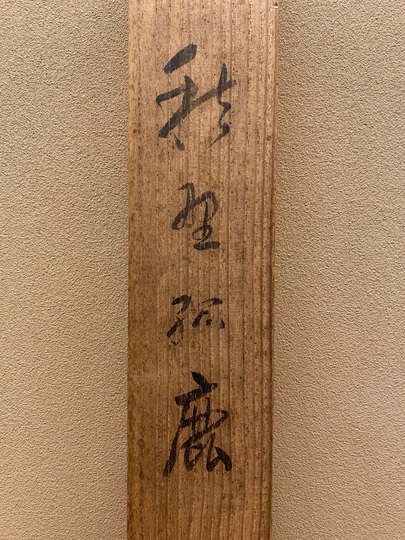 秋野孤鹿